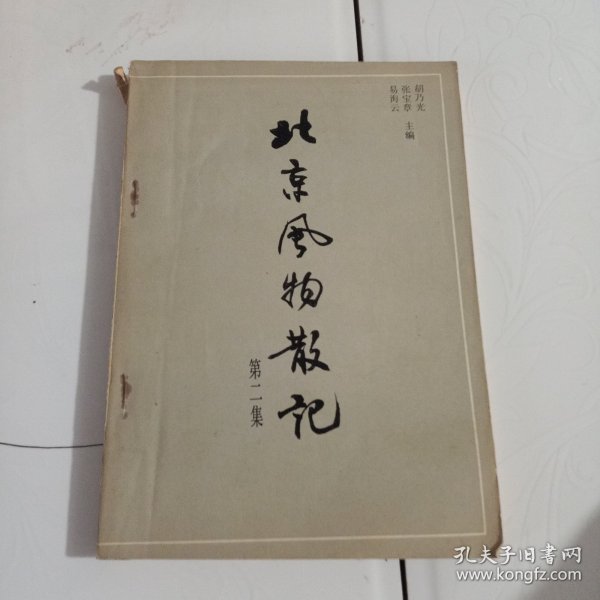 胡乃光
张宝章 主编
易海云
北京风物散记
第二集
孔夫子旧书网
www.kongfz.com